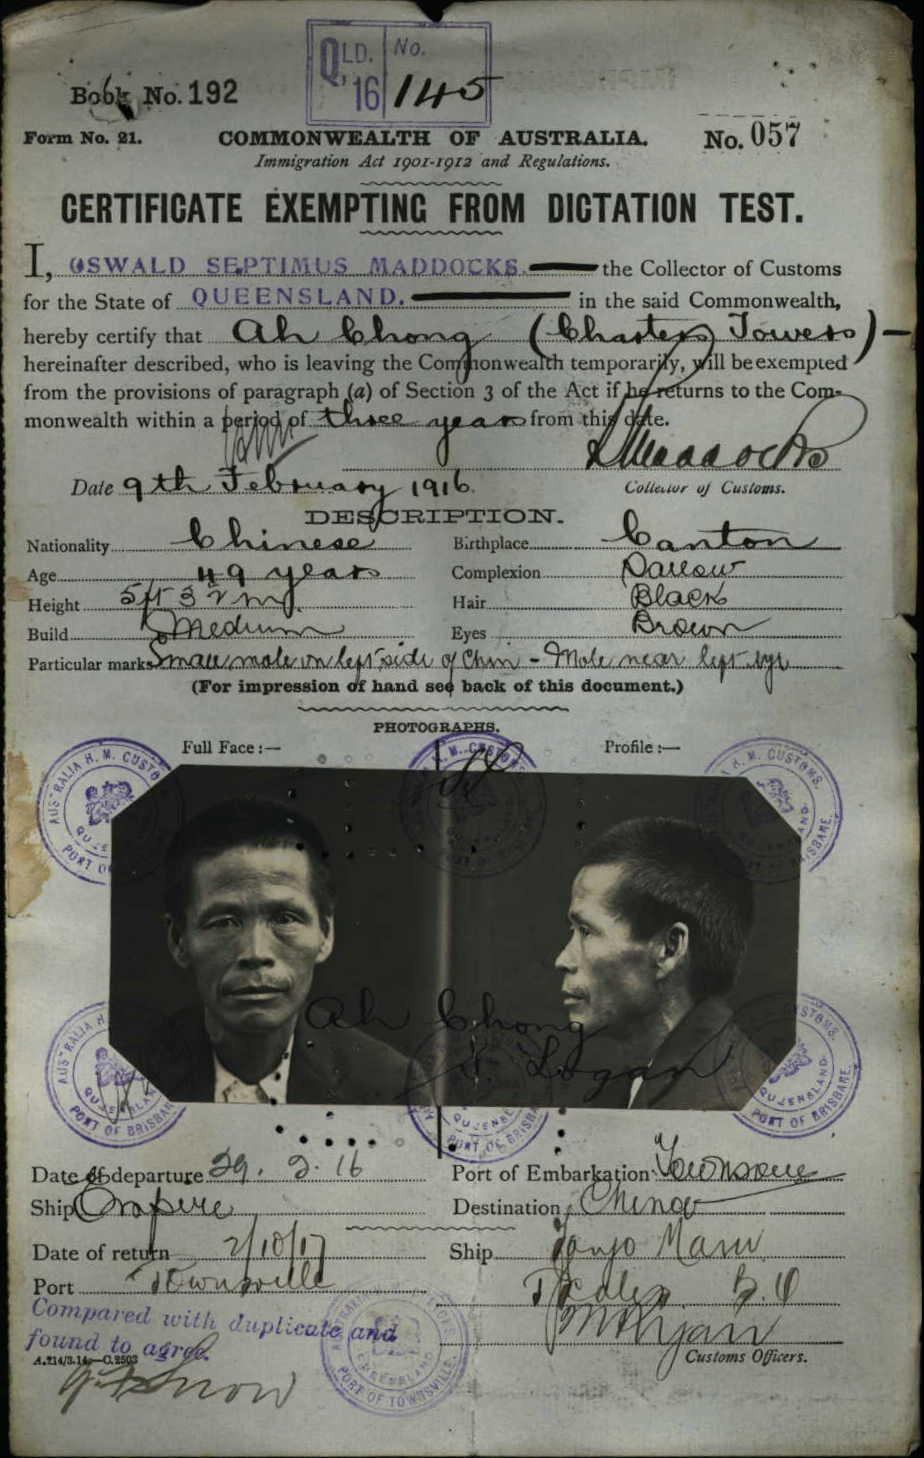 QLD. 16 No. 145
Book No. 192
Form No. 21. COMMONWEALTH OF AUSTRALIA. No. 057
Immigration Act 1901-1912 and Regulations.
CERTIFICATE EXEMPTING FROM DICTATION TEST.
I, OSWALD SEPTIMUS MADDOCKS. the Collector of Customs
for the State of QUEENSLAND. in the said Commonwealth,
hereby certify that Ah Chong (Charters Towers)
hereinafter described, who is leaving the Commonwealth temporarily, will be exempted
from the provisions of paragraph (a) of Section 3 of the Act if he returns to the Com-
monwealth within a period of three years from this date.
Maddocks
Date 9th February 1916. Collector of Customs.
DESCRIPTION.
Nationality Chinese Birthplace Canton
Age 49 years Complexion Sallow
Height 5ft 3½ in Hair Black
Build Medium Eyes Brown
Particular marks Small mole on left side of Chin - Mole near left eye
(For impression of hand see back of this document.)
PHOTOGRAPHS.
Full Face :— Profile :—
AUSTRALIA H. M. CUSTOMS. QUEENSLAND. PORT OF BRISBANE.
Ah Chong
Logan
Date of departure 29. 2. 16 Port of Embarkation Townsville
Ship Empire Destination China
Date of return 2/10/17 Ship Tanjo Maru
Port Townsville
Compared with duplicate and
found to agree.
PORT OF TOWNSVILLE
A.214/3.14.—C.2503 Customs Officers.